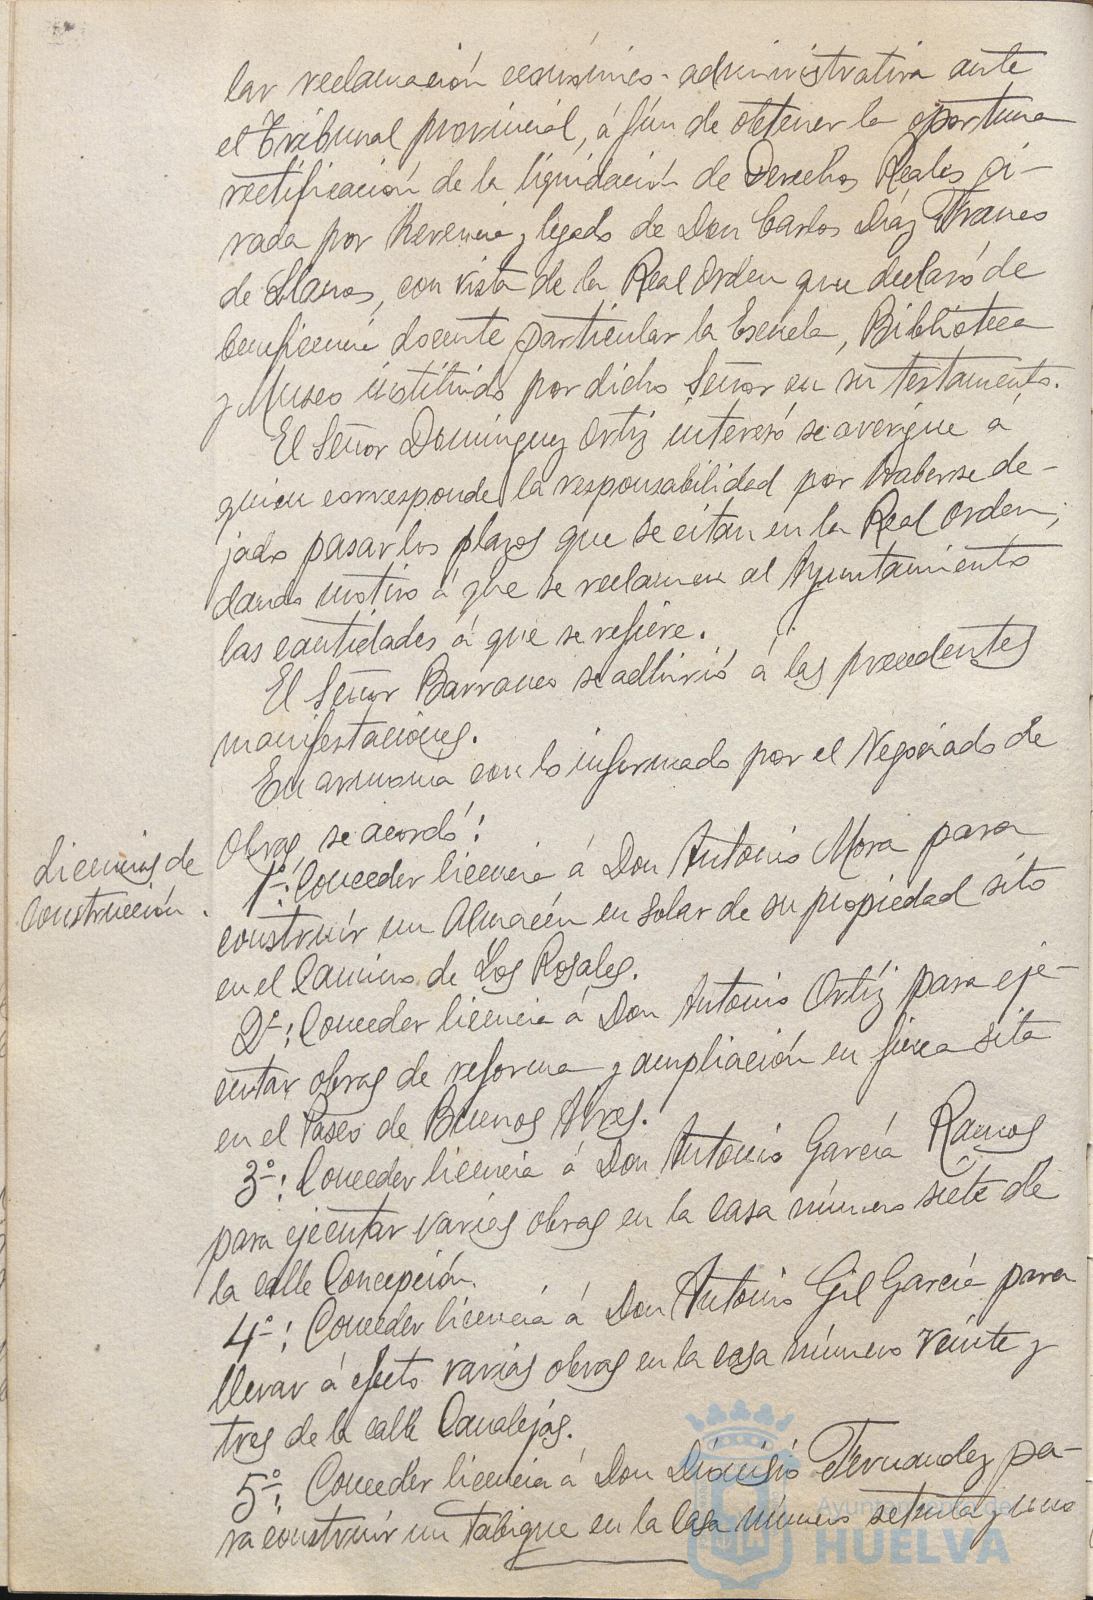 lar reclamación económico-administrativa ante
el Tribunal provincial, á fín de obtener la oportuna
rectificación de la liquidación de Derechos Reales gi-
rada por herencia y legado de Don Carlos Díaz Franco
de Llanos, con vista de la Real Orden que declaró de
beneficencia docente particular la Escuela, Biblioteca
y Museo instituido por dicho Señor en su testamento.
El Señor Dominguez Ortiz interesó se averigue á
quien corresponde la responsabilidad por haberse de-
jado pasar los plazos que se citan en la Real Orden,
dando motivo á que se reclamen al Ayuntamiento
las cantidades á que se refiere.
El Señor Barranco se adhirió á las precedentes
manifestaciones.
En armonia con lo informado por el Negociado de
Obras se acordó:
Licencias de
construcción.
1º: Conceder licencia á Don Antonio Mora para
construir un Almacén en solar de su propiedad sito
en el Camino de Los Rosales.
2º: Conceder licencia á Don Antonio Ortíz para eje-
cutar obras de reforma y ampliación en finca sita
en el Paseo de Buenos Aires.
3º: Conceder licencia á Don Antonio García Ramos
para ejecutar varias obras en la casa número siete de
la calle Concepción.
4º: Conceder licencia á Don Antonio Gil García para
llevar á efecto varias obras en la casa número veinte y
tres de la calle Canalejas.
5º: Conceder licencia á Don Dionisio Fernandez pa-
ra construir un tabique en la casa número setenta y uno
Ayuntamiento de
HUELVA